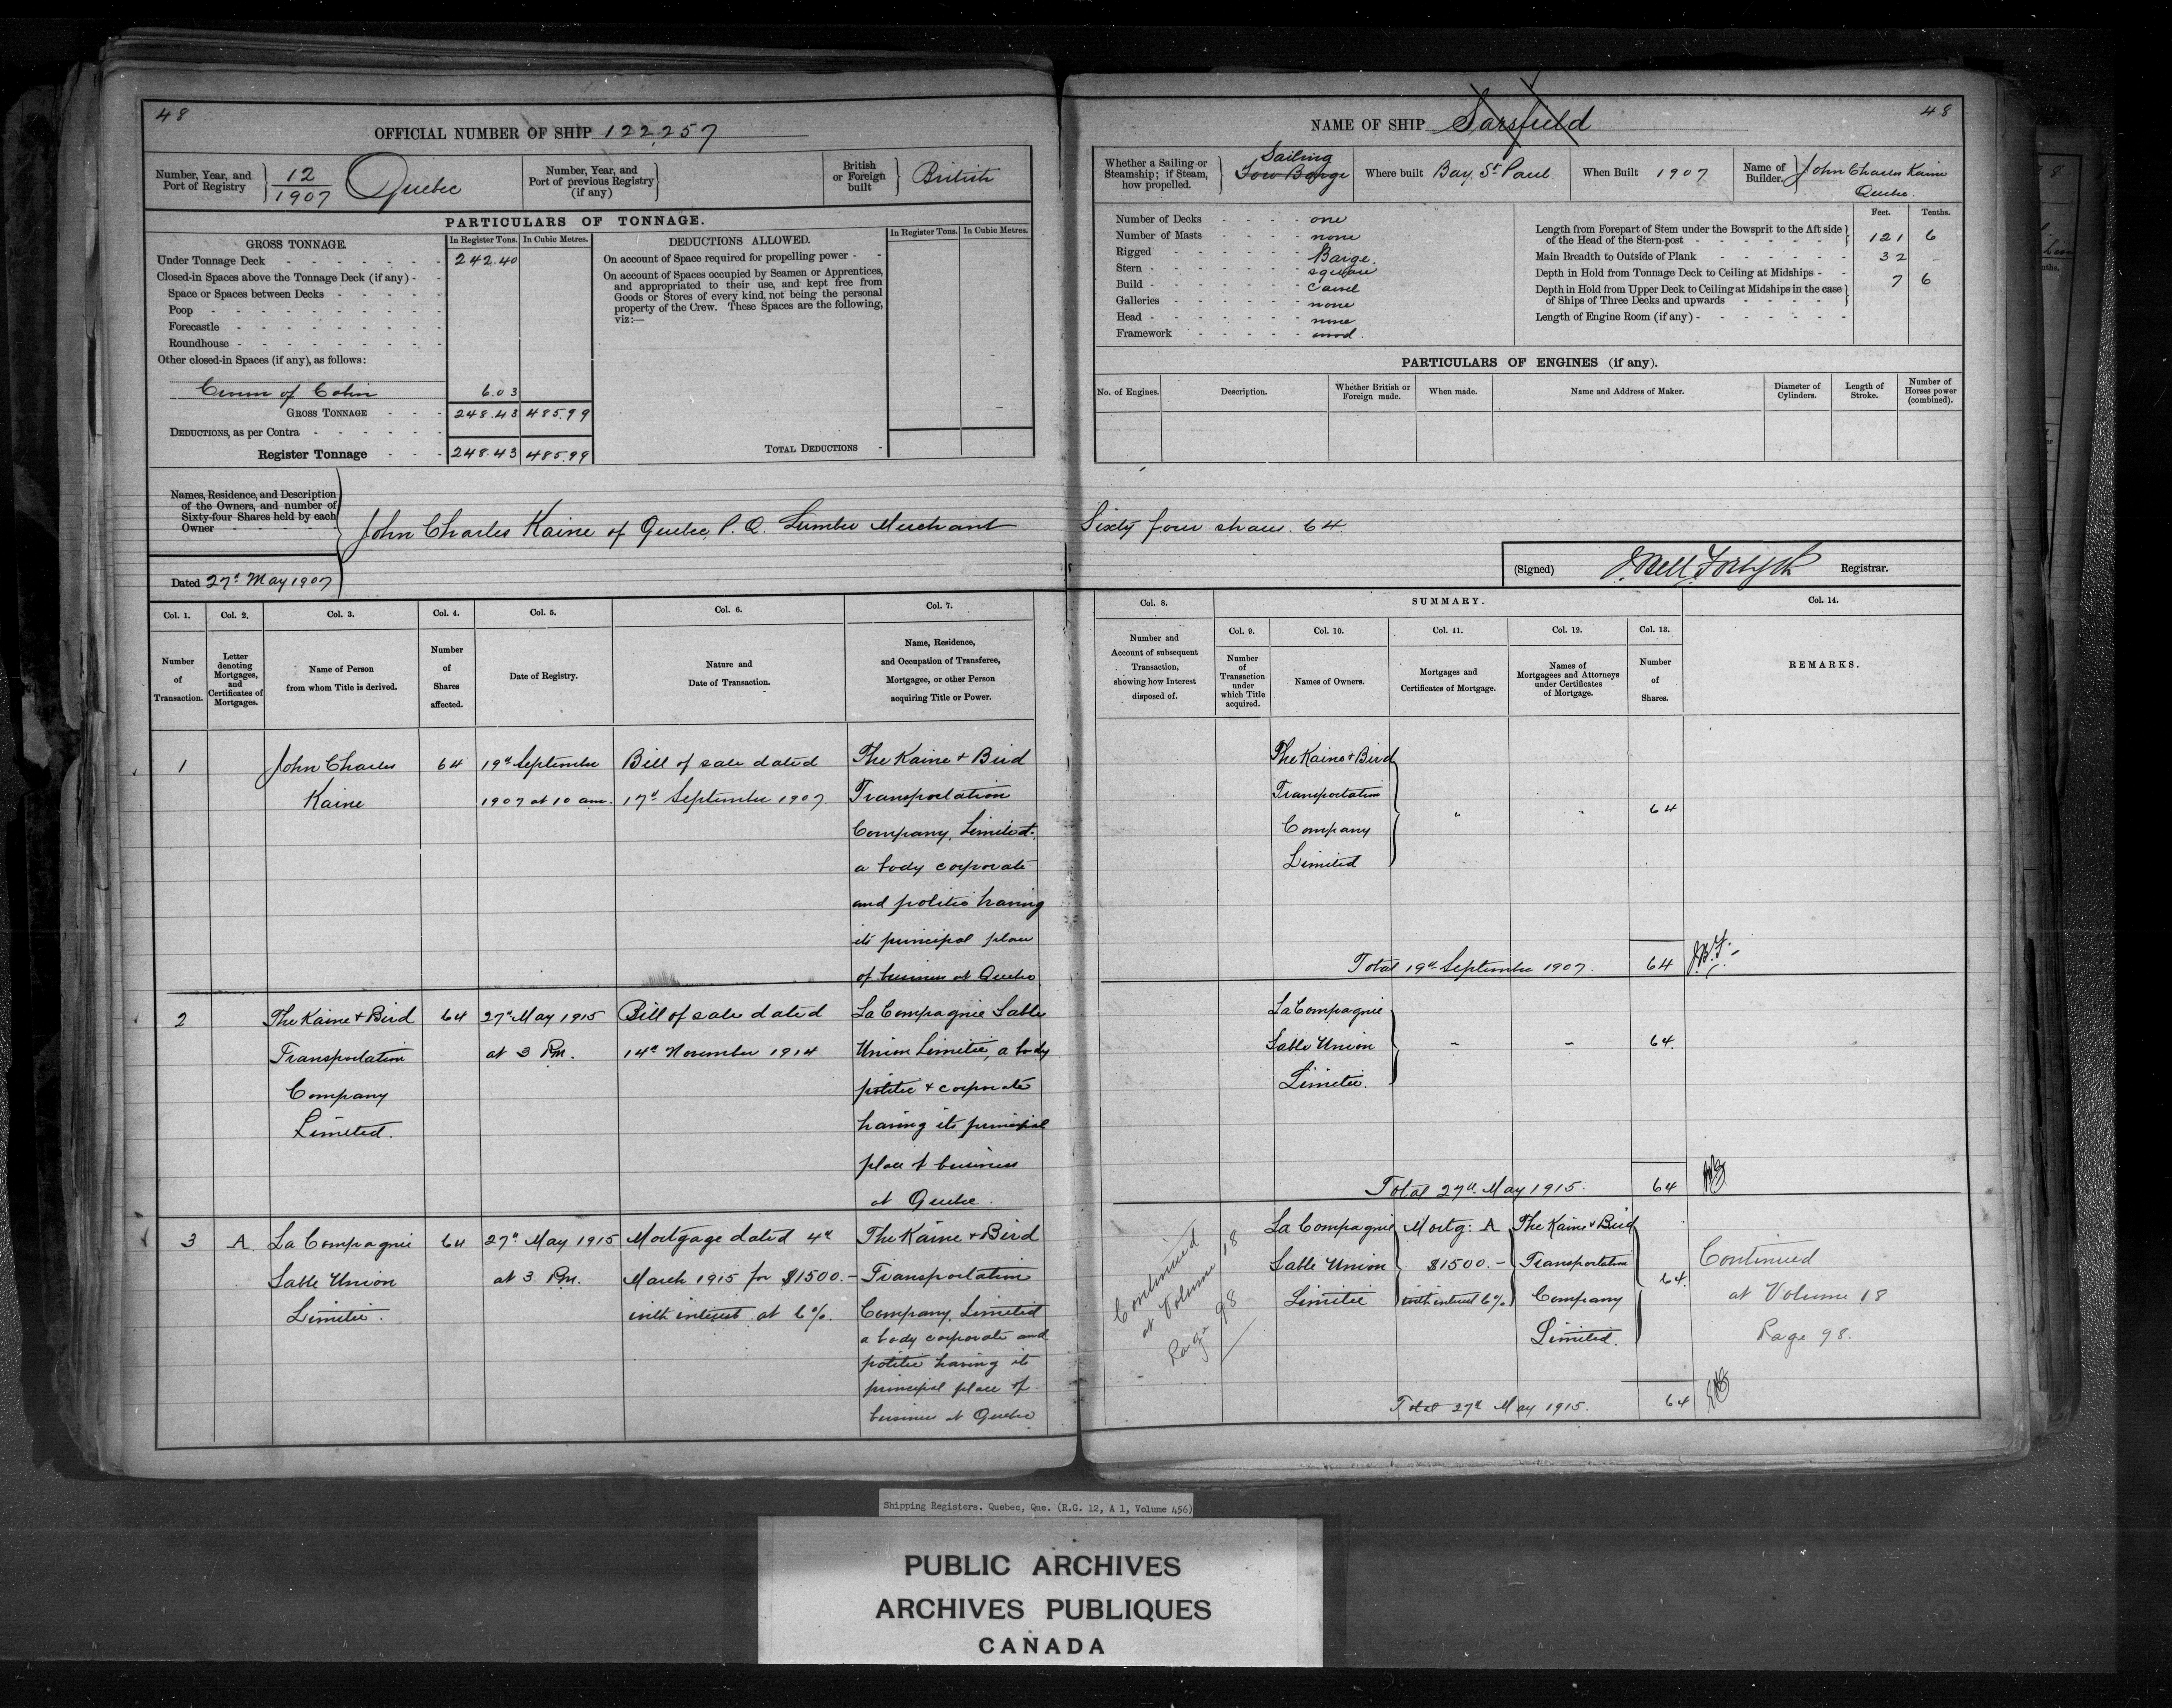 48
OFFICIAL NUMBER OF SHIP 122,257
Number, Year, and Port of Registry 12/1907 Quebec
Number, Year, and Port of previous Registry (if any)
British or Foreign built British
PARTICULARS OF TONNAGE.
GROSS TONNAGE.
In Register Tons. In Cubic Metres.
Under Tonnage Deck 242.40
Closed-in Spaces above the Tonnage Deck (if any)
Space or Spaces between Decks
Poop
Forecastle
Roundhouse
Other closed-in Spaces (if any), as follows:
of Cabin 6.03
GROSS TONNAGE 248.43 485.99
DEDUCTIONS, as per Contra
Register Tonnage 248.43 485.99
DEDUCTIONS ALLOWED.
In Register Tons. In Cubic Metres.
On account of Space required for propelling power
On account of Spaces occupied by Seamen or Apprentices,
and appropriated to their use, and kept free from
Goods or Stores of every kind, not being the personal
property of the Crew. These Spaces are the following,
viz:—
TOTAL DEDUCTIONS
Names, Residence, and Description
of the Owners, and number of
Sixty-four Shares held by each
Owner
John Charles Kaine of Quebec, P.Q. Lumber Merchant Sixty four shares. 64
Dated 27th May 1907
48
NAME OF SHIP Sarsfield
Whether a Sailing or Steamship; if Steam, how propelled. Sailing
Tow Barge
Where built Bay St Paul.
When Built 1907
Name of Builder. John Charles Kaine
Quebec.
Number of Decks one
Number of Masts none
Rigged Barge.
Stern square
Build Carvel
Galleries none
Head none
Framework wood.
Feet. Tenths.
Length from Forepart of Stem under the Bowsprit to the Aft side
of the Head of the Stern-post 121 6
Main Breadth to Outside of Plank 32 -
Depth in Hold from Tonnage Deck to Ceiling at Midships 7 6
Depth in Hold from Upper Deck to Ceiling at Midships in the case
of Ships of Three Decks and upwards
Length of Engine Room (if any)
PARTICULARS OF ENGINES (if any).
No. of Engines. Description. Whether British or Foreign made. When made. Name and Address of Maker. Diameter of Cylinders. Length of Stroke. Number of Horses power (combined).
(Signed) J. Bell Forsyth Registrar.
Col. 1. Col. 2. Col. 3. Col. 4. Col. 5. Col. 6. Col. 7.
Number of Transaction.
Letter denoting Mortgages, and Certificates of Mortgages.
Name of Person from whom Title is derived.
Number of Shares affected.
Date of Registry.
Nature and Date of Transaction.
Name, Residence, and Occupation of Transferee, Mortgagee, or other Person acquiring Title or Power.
Col. 8. SUMMARY. Col. 14.
Col. 9. Col. 10. Col. 11. Col. 12. Col. 13.
Number and Account of subsequent Transaction, showing how Interest disposed of.
Number of Transaction under which Title acquired.
Names of Owners.
Mortgages and Certificates of Mortgage.
Names of Mortgagees and Attorneys under Certificates of Mortgage.
Number of Shares.
REMARKS.
1 John Charles 64 19th September Bill of sale dated The Kaine & Bird
Kaine 1907 at 10 am. 17th September 1907. Transportation
Company, Limited.
a body corporate
and politic having
its principal place
of business at Quebec
The Kaine & Bird
Transportation
Company
Limited
64
Total 19th September 1907. 64 J.B.F.
2 The Kaine & Bird 64 27th May 1915 Bill of sale dated La Compagnie Sable
Transportation at 3 P.m. 14th November 1914 Union Limitée, a body
Company politic & corporate
Limited. having its principal
place of business
at Quebec.
La Compagnie
Sable Union
Limitée.
64.
Total 27th May 1915. 64
3 A. La Compagnie 64 27th May 1915 Mortgage dated 4th The Kaine & Bird
Sable Union at 3 P.m. March 1915 for $1500.- Transportation
Limitée. with interest at 6%. Company, Limited
a body corporate and
politic having its
principal place of
business at Quebec
Continued
at Volume 18
Page 98
La Compagnie Mortg: A The Kaine & Bird
Sable Union $1500.- Transportation
Limitée with interest 6% Company
Limited.
64.
Continued
at Volume 18
Page 98.
Total 27th May 1915. 64
Shipping Registers. Quebec, Que. (R.G. 12, A 1, Volume 456)
PUBLIC ARCHIVES
ARCHIVES PUBLIQUES
CANADA